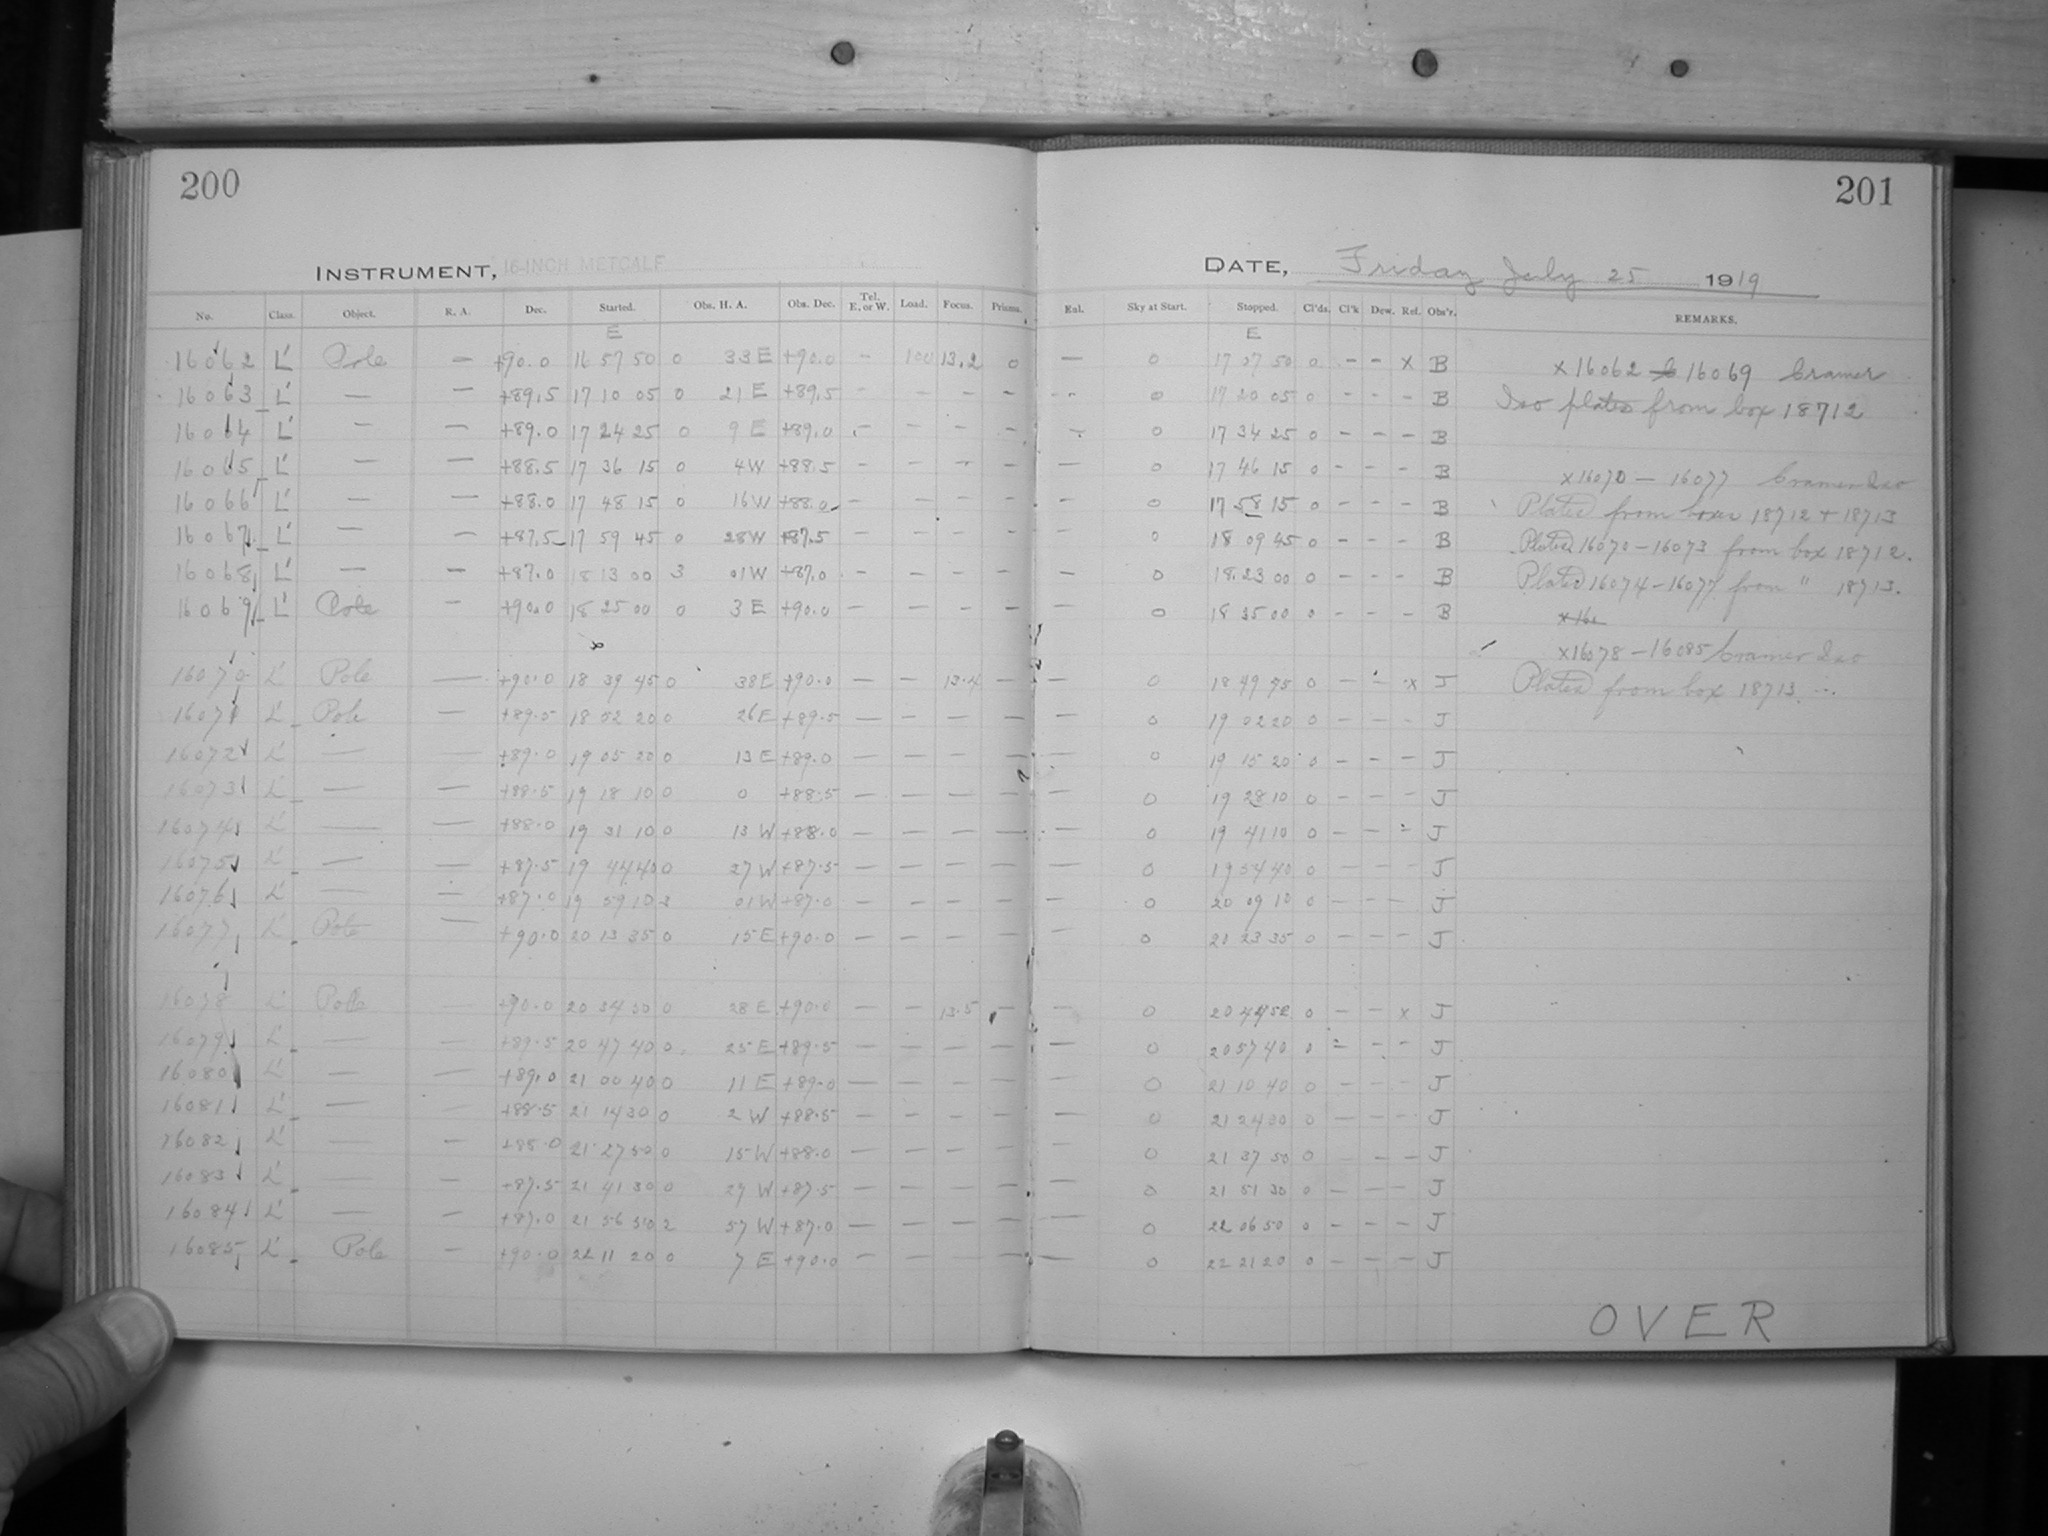 200
201
INSTRUMENT, 16-INCH METCALF
DATE, Friday July 25 1919
No. Class. Object. R. A. Dec. Started. Obs. H. A. Obs. Dec. Tel. E. or W. Load. Focus. Prisms. Enl. Sky at Start. Stopped. Cl'ds. Cl'k Dew. Ref. Obs'r. REMARKS.
E E
16062 L' Pole — +90.0 16 57 50 0 33 E +90.0 - 100 13.2 0 — 0 17 07 50 0 - - x B x 16062 16069 Cramer
16063 L' — — +89.5 17 10 05 0 21 E +89.5 - - - - - - 0 17 20 05 0 - - - B Iso plates from box 18712
16064 L' — — +89.0 17 24 25 0 9 E +89.0 - - - - - - 0 17 34 25 0 - - - B
16065 L' — — +88.5 17 36 15 0 4 W +88.5 - - - - - — 0 17 46 15 0 - - - B x 16070 — 16077 Cramer Iso
16066 L' — — +88.0 17 48 15 0 16 W +88.0 - - - - - — 0 17 58 15 0 - - - B Plates from boxes 18712 + 18713
16067 L' — — +87.5 17 59 45 0 28 W +87.5 - - - - - — 0 18 09 45 0 - - - B Plates 16070 - 16073 from box 18712.
16068 L' — — +87.0 18 13 00 3 01 W +87.0 - - - - - — 0 18 23 00 0 - - - B Plates 16074 - 16077 from " 18713.
16069 L' Pole — +90.0 18 25 00 0 3 E +90.0 - - - - - — 0 18 35 00 0 - - - B
x 16078 - 16085 Cramer Iso
16070 L' Pole — +90.0 18 39 45 0 38 E +90.0 — — 13.4 — — 0 18 49 45 0 - - x J Plates from box 18713
16071 L' Pole — +89.5 18 52 20 0 26 E +89.5 — — — — — 0 19 02 20 0 - - - J
16072 L' — — +89.0 19 05 20 0 13 E +89.0 — — — — — 0 19 15 20 0 - - - J
16073 L' — — +88.5 19 18 10 0 0 +88.5 — — — — — 0 19 28 10 0 - - - J
16074 L' — — +88.0 19 31 10 0 13 W +88.0 — — — — — 0 19 41 10 0 - - - J
16075 L' — — +87.5 19 44 40 0 27 W +87.5 — — — — — 0 19 54 40 0 - - - J
16076 L' — — +87.0 19 59 10 3 01 W +87.0 — — — — — 0 20 09 10 0 - - - J
16077 L' Pole — +90.0 20 13 35 0 15 E +90.0 — — — — — 0 20 23 35 0 - - - J
L' Pole — +90.0 20 34 50 0 28 E +90.0 — — 13.5 — — 0 20 44 50 0 - - x J
16079 L' — — +89.5 20 47 40 0 25 E +89.5 — — — — — 0 20 57 40 0 - - - J
16080 L' — — +89.0 21 00 40 0 11 E +89.0 — — — — — 0 21 10 40 0 - - - J
16081 L' — — +88.5 21 14 30 0 2 W +88.5 — — — — — 0 21 24 30 0 - - - J
16082 L' — — +88.0 21 27 50 0 15 W +88.0 — — — — — 0 21 37 50 0 - - - J
16083 L' — — +87.5 21 41 30 0 27 W +87.5 — — — — — 0 21 51 30 0 - - - J
16084 L' — — +87.0 21 56 50 2 57 W +87.0 — — — — — 0 22 06 50 0 - - - J
16085 L' Pole — +90.0 22 11 20 0 7 E +90.0 — — — — — 0 22 21 20 0 - - - J
OVER